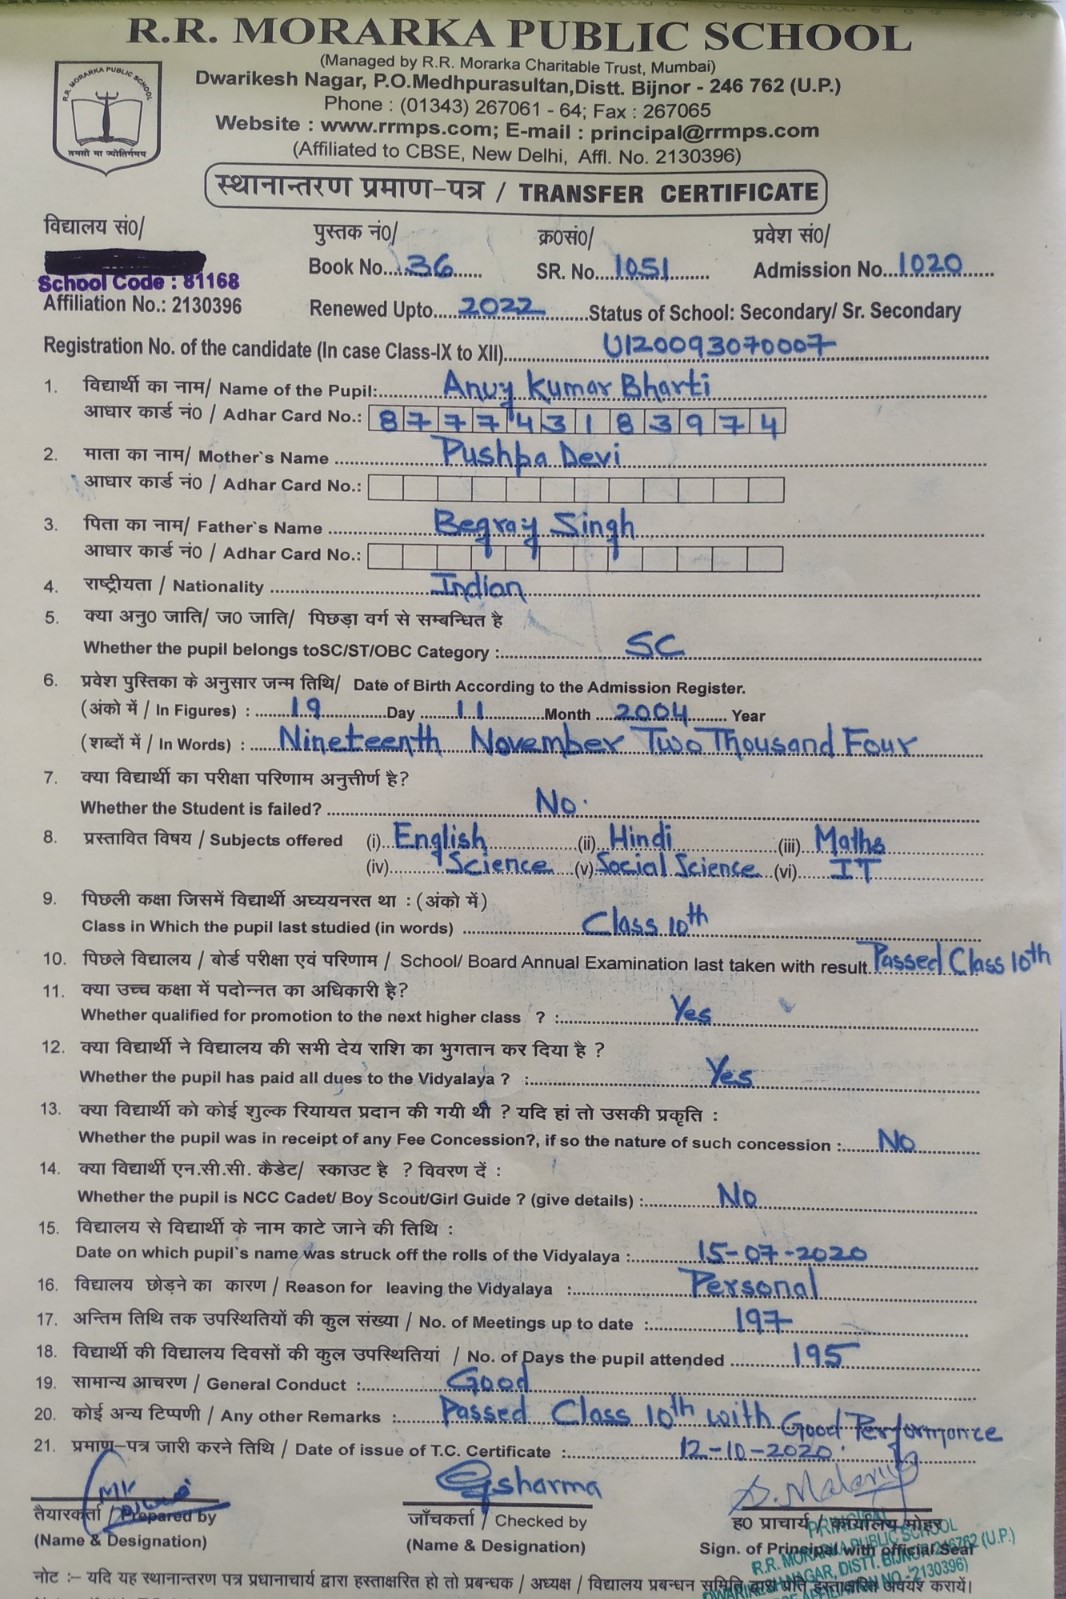 R.R. MORARKA PUBLIC SCHOOL
(Managed by R.R. Morarka Charitable Trust, Mumbai)
Dwarikesh Nagar, P.O.Medhpurasultan,Distt. Bijnor - 246 762 (U.P.)
Phone : (01343) 267061 - 64; Fax : 267065
Website : www.rrmps.com; E-mail : principal@rrmps.com
(Affiliated to CBSE, New Delhi, Affl. No. 2130396)
R.R. MORARKA PUBLIC SCHOOL
तमसो मा ज्योतिर्गमय
स्थानान्तरण प्रमाण-पत्र / TRANSFER CERTIFICATE
विद्यालय सं0/ पुस्तक नं0/ क्र0सं0/ प्रवेश सं0/
Book No. 36 SR. No. 1051 Admission No. 1020
School Code : 81168
Affiliation No.: 2130396 Renewed Upto 2022 Status of School: Secondary/ Sr. Secondary
Registration No. of the candidate (In case Class-IX to XII) U120093070007
1. विद्यार्थी का नाम/ Name of the Pupil: Anuj Kumar Bharti
आधार कार्ड नं0 / Adhar Card No.: 877743183974
2. माता का नाम/ Mother`s Name Pushpa Devi
आधार कार्ड नं0 / Adhar Card No.:
3. पिता का नाम/ Father`s Name Begraj Singh
आधार कार्ड नं0 / Adhar Card No.:
4. राष्ट्रीयता / Nationality Indian
5. क्या अनु0 जाति/ ज0 जाति/ पिछड़ा वर्ग से सम्बन्धित है
Whether the pupil belongs toSC/ST/OBC Category : SC
6. प्रवेश पुस्तिका के अनुसार जन्म तिथि/ Date of Birth According to the Admission Register.
(अंको में / In Figures) : 19 Day 11 Month 2004 Year
(शब्दों में / In Words) : Nineteenth November Two Thousand Four
7. क्या विद्यार्थी का परीक्षा परिणाम अनुत्तीर्ण है?
Whether the Student is failed? No.
8. प्रस्तावित विषय / Subjects offered (i) English (ii) Hindi (iii) Maths
(iv) Science (v) Social Science (vi) IT
9. पिछली कक्षा जिसमें विद्यार्थी अघ्ययनरत था : (अंको में)
Class in Which the pupil last studied (in words) Class 10th
10. पिछले विद्यालय / बोर्ड परीक्षा एवं परिणाम / School/ Board Annual Examination last taken with result Passed Class 10th
11. क्या उच्च कक्षा में पदोन्नत का अधिकारी है?
Whether qualified for promotion to the next higher class ? : Yes
12. क्या विद्यार्थी ने विद्यालय की सभी देय राशि का भुगतान कर दिया है ?
Whether the pupil has paid all dues to the Vidyalaya ? : Yes
13. क्या विद्यार्थी को कोई शुल्क रियायत प्रदान की गयी थी ? यदि हां तो उसकी प्रकृति :
Whether the pupil was in receipt of any Fee Concession?, if so the nature of such concession : No
14. क्या विद्यार्थी एन.सी.सी. कैडेट/ स्काउट है ? विवरण दें :
Whether the pupil is NCC Cadet/ Boy Scout/Girl Guide ? (give details) : No
15. विद्यालय से विद्यार्थी के नाम काटे जाने की तिथि :
Date on which pupil`s name was struck off the rolls of the Vidyalaya : 15-07-2020
16. विद्यालय छोड़ने का कारण / Reason for leaving the Vidyalaya : Personal
17. अन्तिम तिथि तक उपस्थितियों की कुल संख्या / No. of Meetings up to date : 197
18. विद्यार्थी की विद्यालय दिवसों की कुल उपस्थितियां / No. of Days the pupil attended 195
19. सामान्य आचरण / General Conduct : Good
20. कोई अन्य टिप्पणी / Any other Remarks : Passed Class 10th with Good Performance
21. प्रमाण-पत्र जारी करने तिथि / Date of issue of T.C. Certificate : 12-10-2020.
Gsharma
तैयारकर्ता / Prepared by जाँचकर्ता / Checked by ह0 प्राचार्य / कार्यालय मोहर
(Name & Designation) (Name & Designation) Sign. of Principal with official Seal
PRINCIPAL
R.R. MORARKA PUBLIC SCHOOL
DWARIKESH NAGAR, DISTT. BIJNOR-246762 (U.P.)
AFFILIATION NO.-2130396)
नोट :– यदि यह स्थानान्तरण पत्र प्रधानाचार्य द्वारा हस्ताक्षरित हो तो प्रबन्धक / अध्यक्ष / विद्यालय प्रबन्धन समिति द्वारा प्रति हस्ताक्षरित अवश्य करायें।